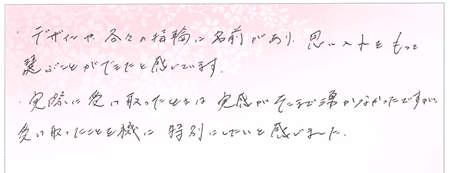 ・デザインや各々の指輪に名前があり、思い入れをもって
選ぶことができたと感じています。
・実際に受け取ったときは実感がそこまで湧かなかったですが、
受け取ったことを機に特別にしたいと感じました。